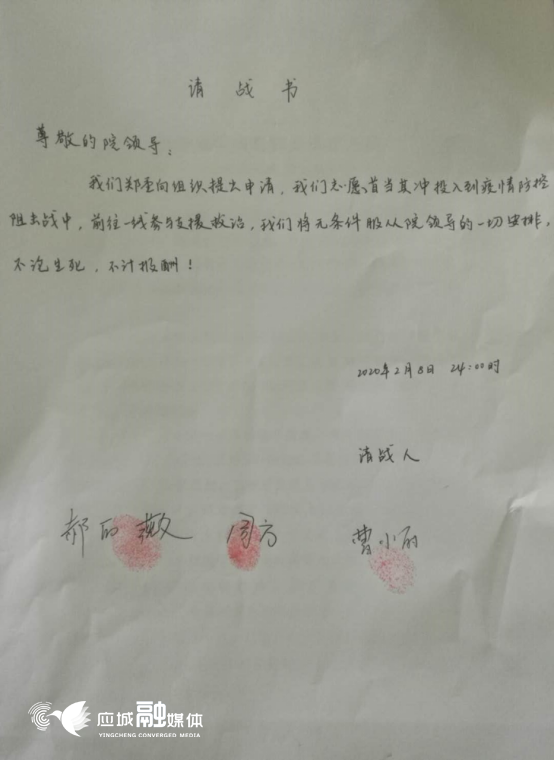 请战书
尊敬的院领导：
我们郑重向组织提出申请，我们志愿首当其冲投入到疫情防控
阻击战中，前往一线参与支援救治，我们将无条件服从院领导的一切安排，
不论生死，不计报酬！
2020年2月8日 24:00时
请战人
郝 周方 曹小丽
应城融媒体
YINGCHENG CONVERGED MEDIA